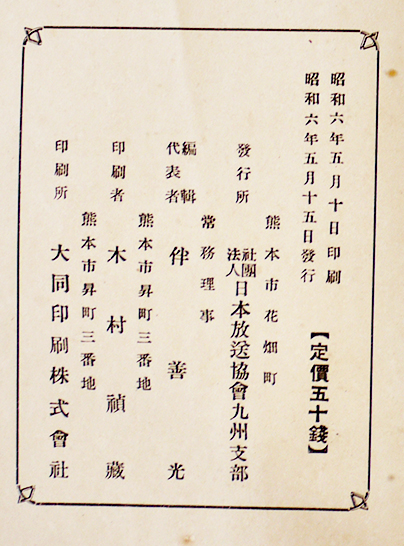 昭和六年五月十日印刷
昭和六年五月十五日發行
【定價五十錢】
熊本市花畑町
發行所 社團法人日本放送協會九州支部
常務理事
編輯代表者 伴善光
熊本市昇町三番地
印刷者 木村禎藏
熊本市昇町三番地
印刷所 大同印刷株式會社